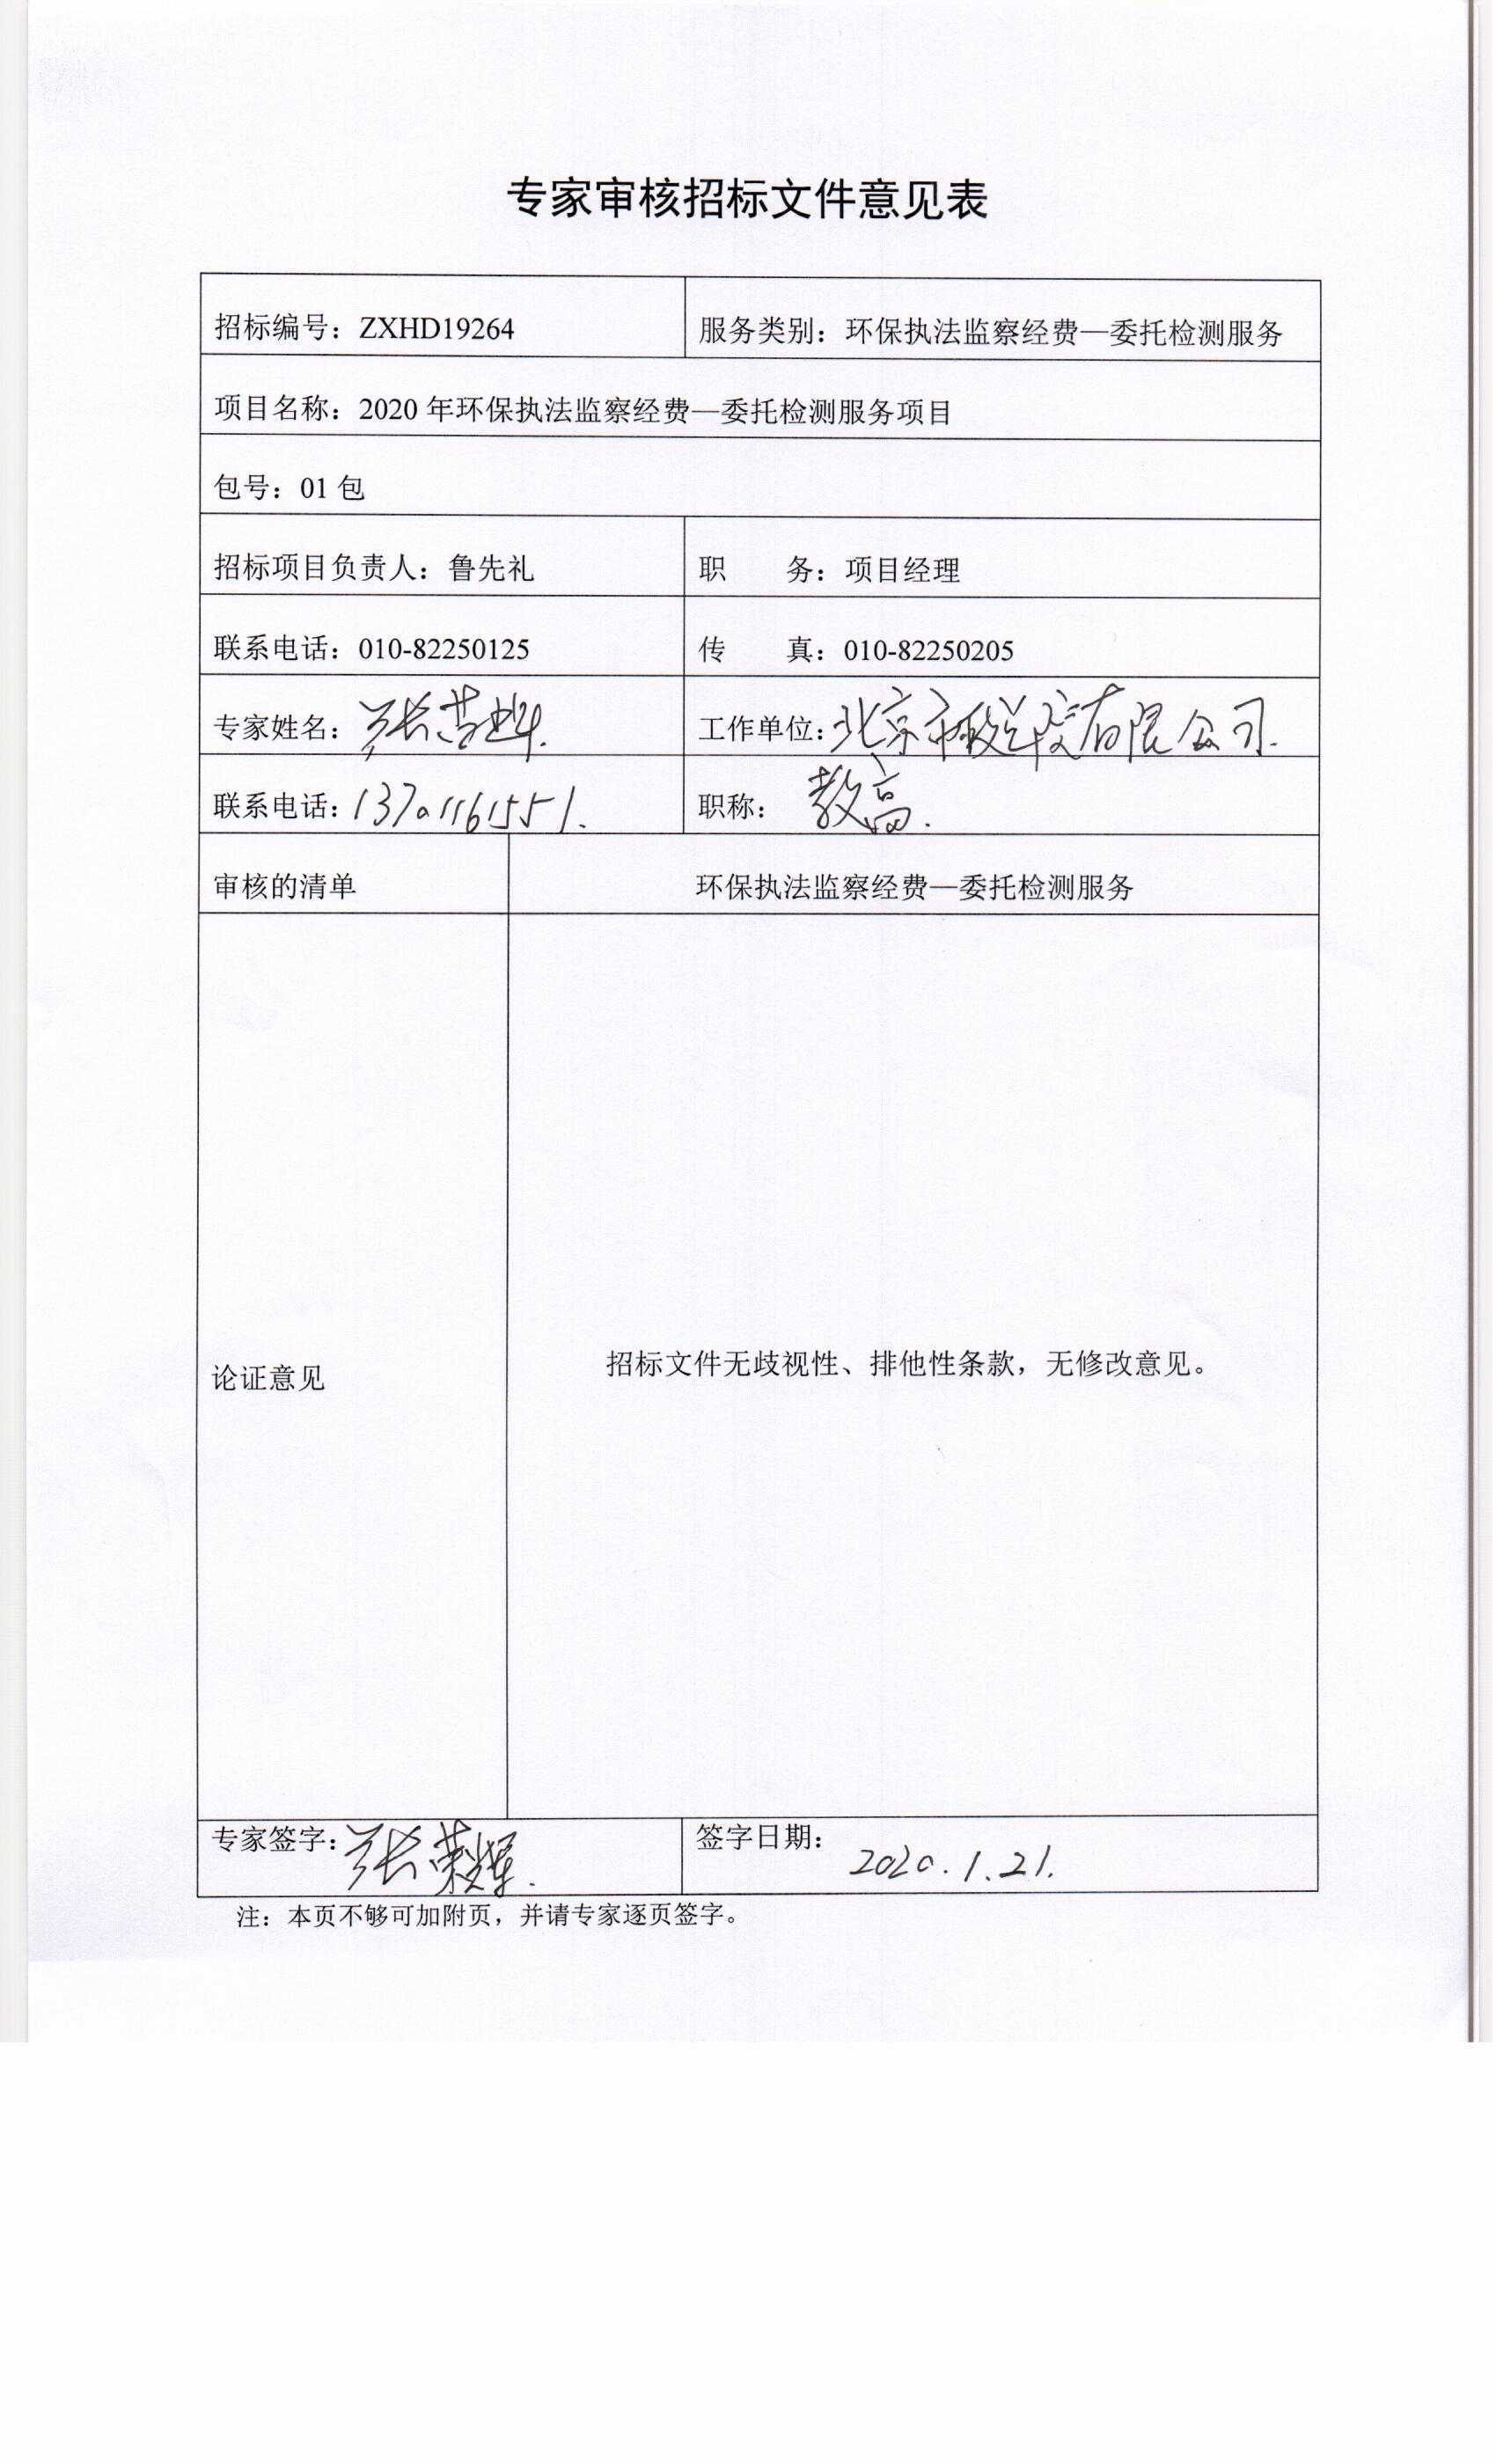 专家审核招标文件意见表
招标编号：ZXHD19264
服务类别：环保执法监察经费—委托检测服务
项目名称：2020 年环保执法监察经费—委托检测服务项目
包号：01 包
招标项目负责人：鲁先礼
职 务：项目经理
联系电话：010-82250125
传 真：010-82250205
专家姓名：张荣辉.
工作单位：北京市政总院有限公司.
联系电话：13701161551.
职称：教高.
审核的清单
环保执法监察经费—委托检测服务
论证意见
招标文件无歧视性、排他性条款，无修改意见。
专家签字：张荣辉.
签字日期：2020.1.21.
注：本页不够可加附页，并请专家逐页签字。